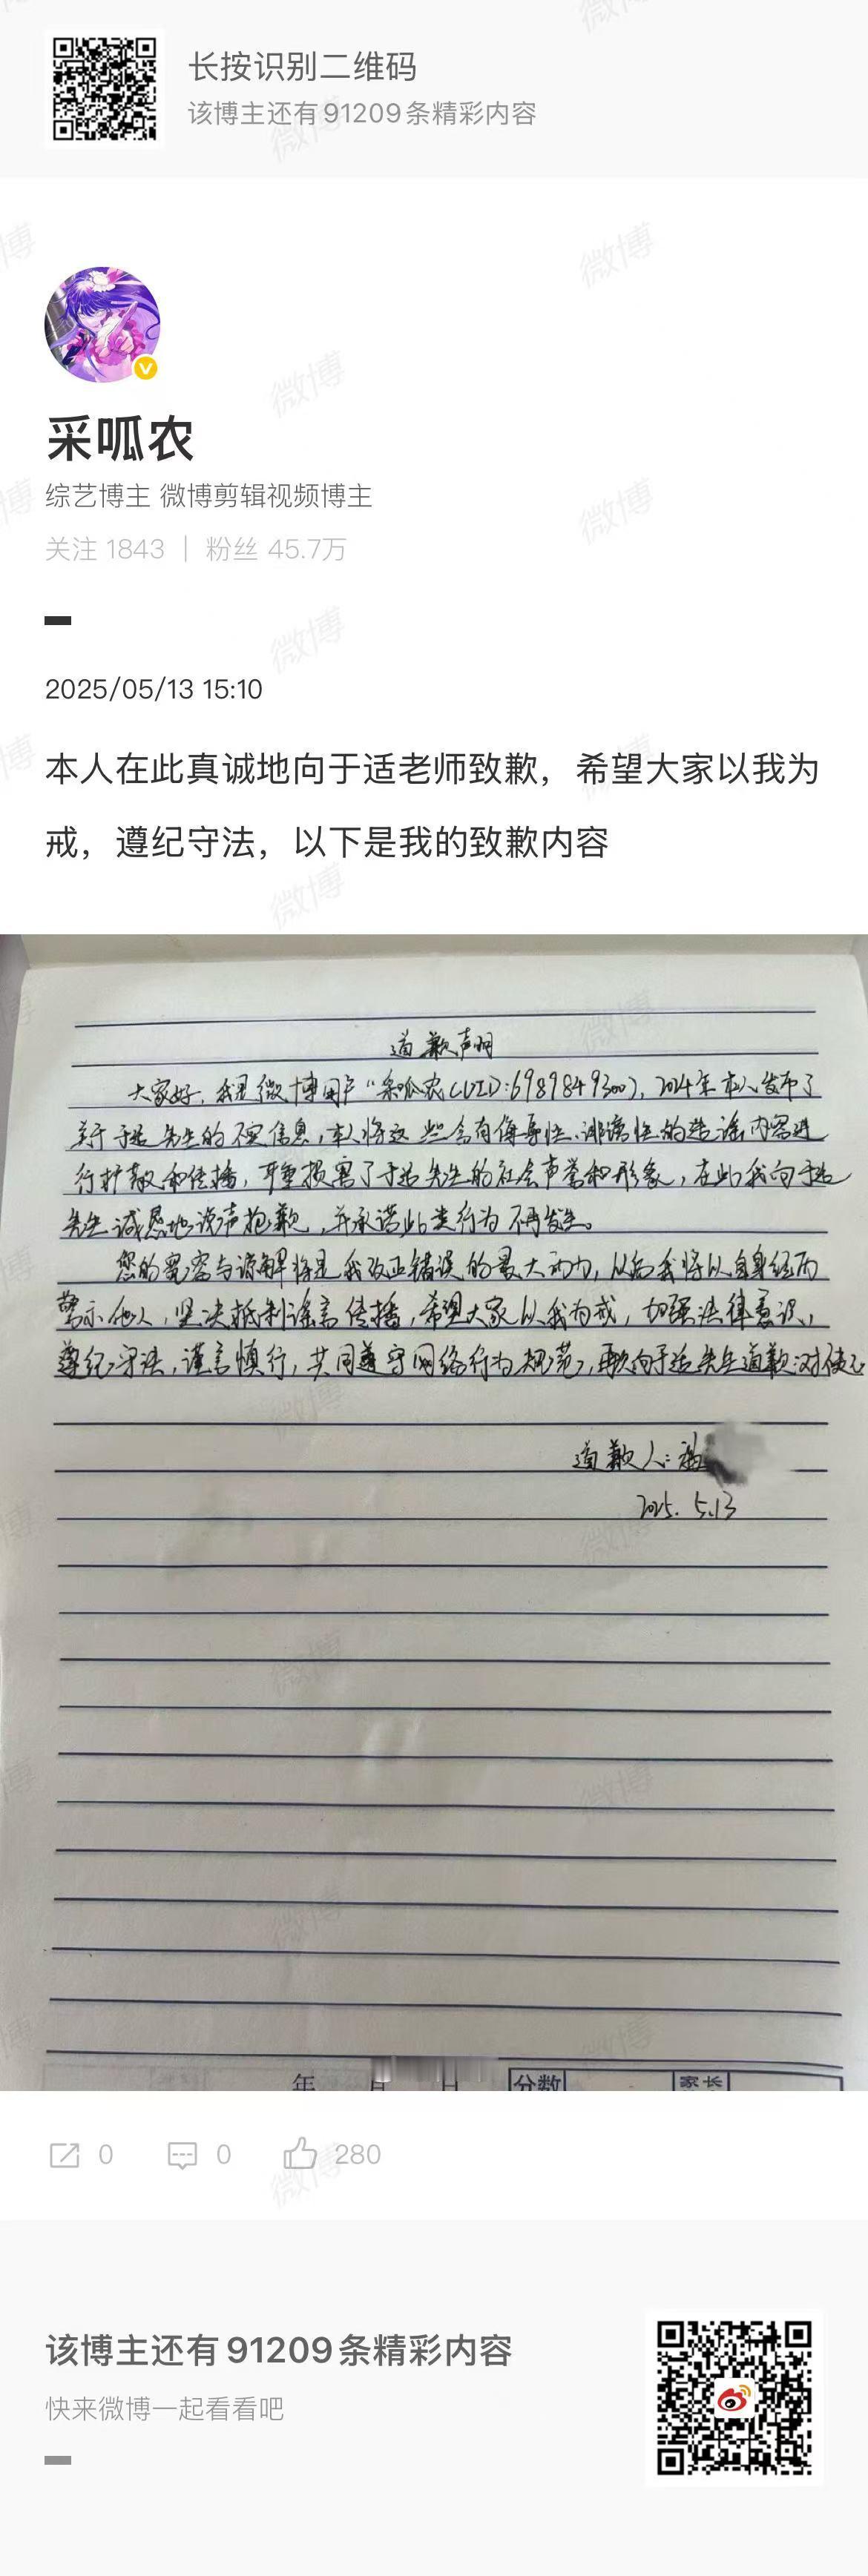 长按识别二维码
该博主还有91209条精彩内容
采呱农
综艺博主 微博剪辑视频博主
关注 1843 | 粉丝 45.7万
2025/05/13 15:10
本人在此真诚地向于适老师致歉，希望大家以我为
戒，遵纪守法，以下是我的致歉内容
道歉声明
大家好，我是微博用户“采呱农（UID:6989849300），2024年本人发布了
关于于适先生的不实信息，本人将这些含有侮辱性、诽谤性的造谣内容进
行扩散和传播，严重损害了于适先生的社会声誉和形象，在此我向于适
先生诚恳地说声抱歉，并承诺此类行为不再发生。
您的宽容与谅解将是我改正错误的最大动力，以后我将以自身经历
警示他人，坚决抵制谣言传播，希望大家以我为戒，加强法律意识，
遵纪守法，谨言慎行，共同遵守网络行为规范，再次向于适先生道歉
道歉人：
2025. 5.13
年 月 日 分数 家长
0 0 280
该博主还有91209条精彩内容
快来微博一起看看吧
微博